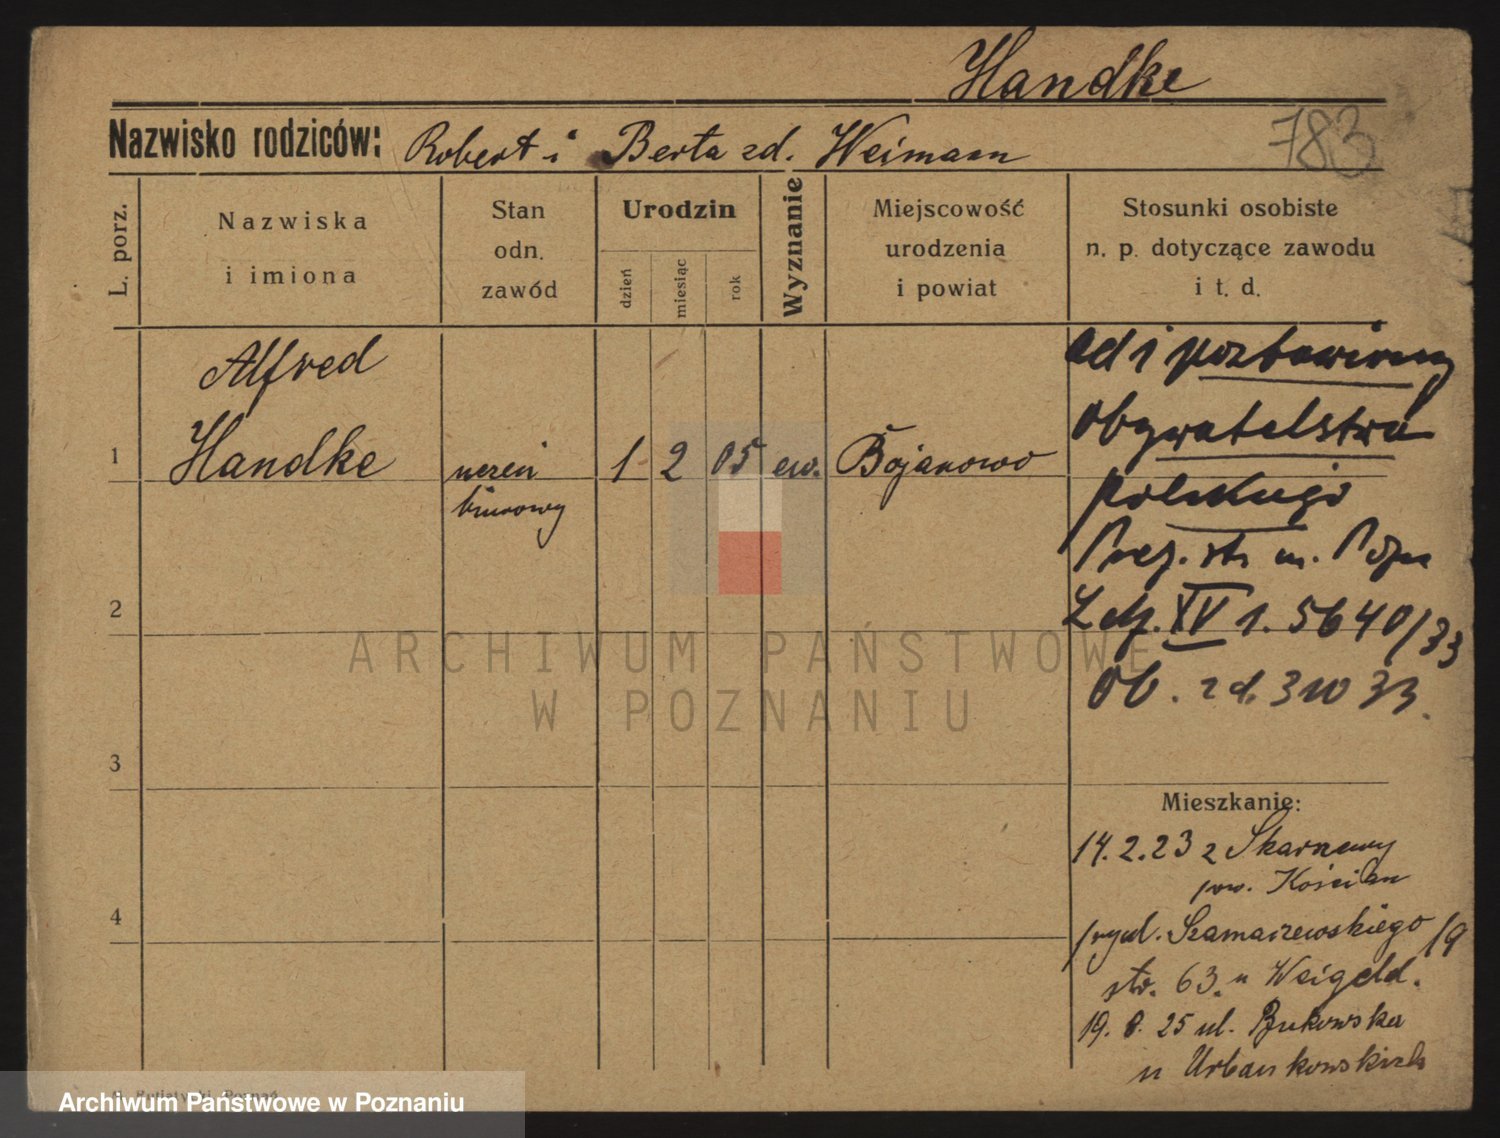 Handke
Nazwisko rodziców: Robert i Berta zd. Weimann
783
L. porz.
Nazwiska
i imiona
Stan
odn.
zawód
Urodzin
dzień
miesiąc
rok
Wyznanie
Miejscowość
urodzenia
i powiat
Stosunki osobiste
n. p. dotyczące zawodu
i t. d.
1
Alfred
Handke
uczeń
biurowy
1 2 05 ew. Bojanowo
ad 1 pozbawiony
obywatelstwa
polskiego
L. dz. XV 1. 5640/33
Ob. z d. 3 10 33.
2
3
4
Mieszkanie:
14.2.23 z
pow. Kościan
Szamarzewskiego 19
str. 63. u Weigeld.
19. 8. 25 ul. Bukowska
u Urbankowskich
ARCHIWUM PAŃSTWOWE
W POZNANIU
Archiwum Państwowe w Poznaniu